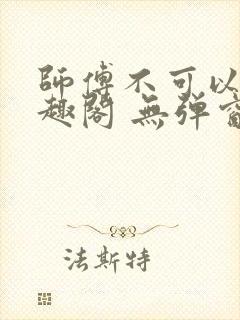 師傅不可以
趣閣 無弹
法斯特